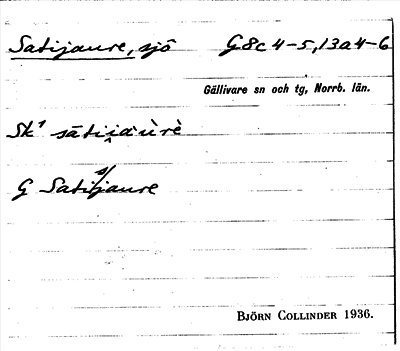 Satijaure, sjö G8c4-5,13a4-6
Gällivare sn och tg, Norrb. län.
Sk¹
G Satijaure
BJÖRN COLLINDER 1936.